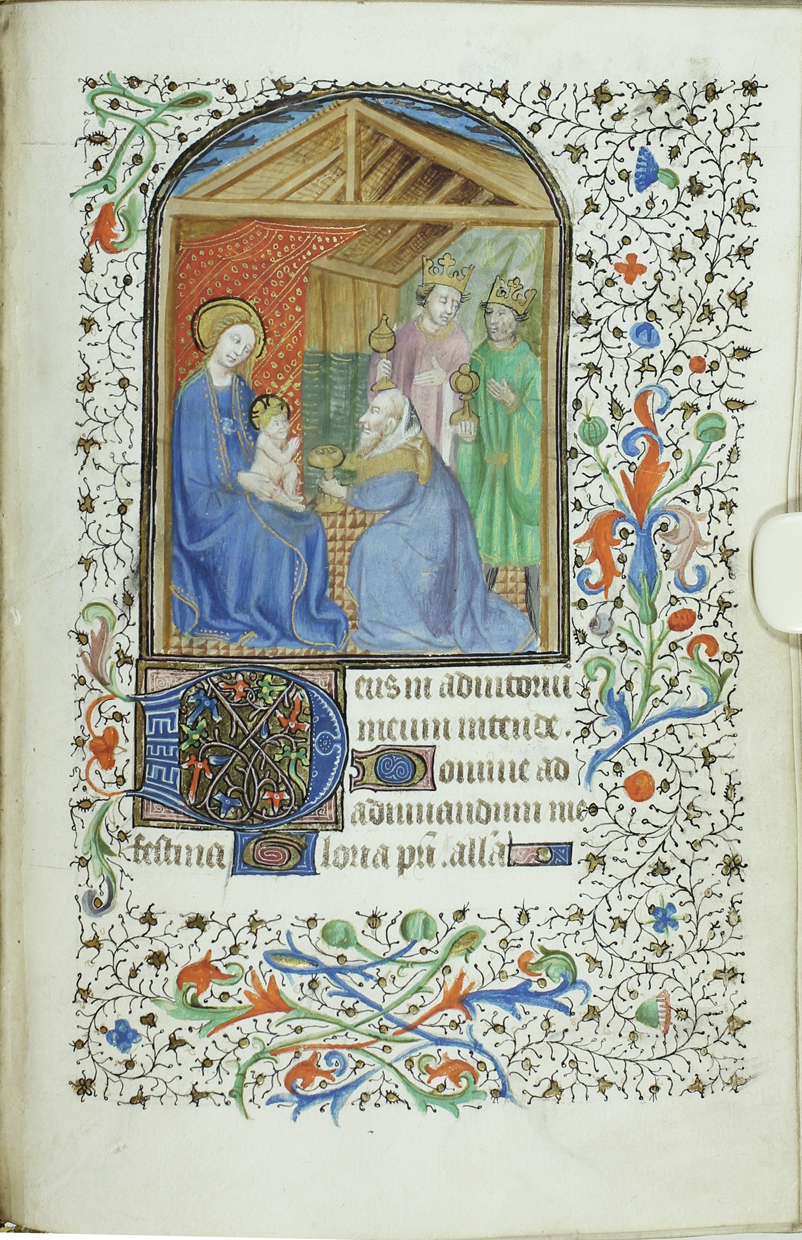 Deus in adiutoriu
meum intende.
Domine ad
adiuuandum me
festina Gloria pri. alla